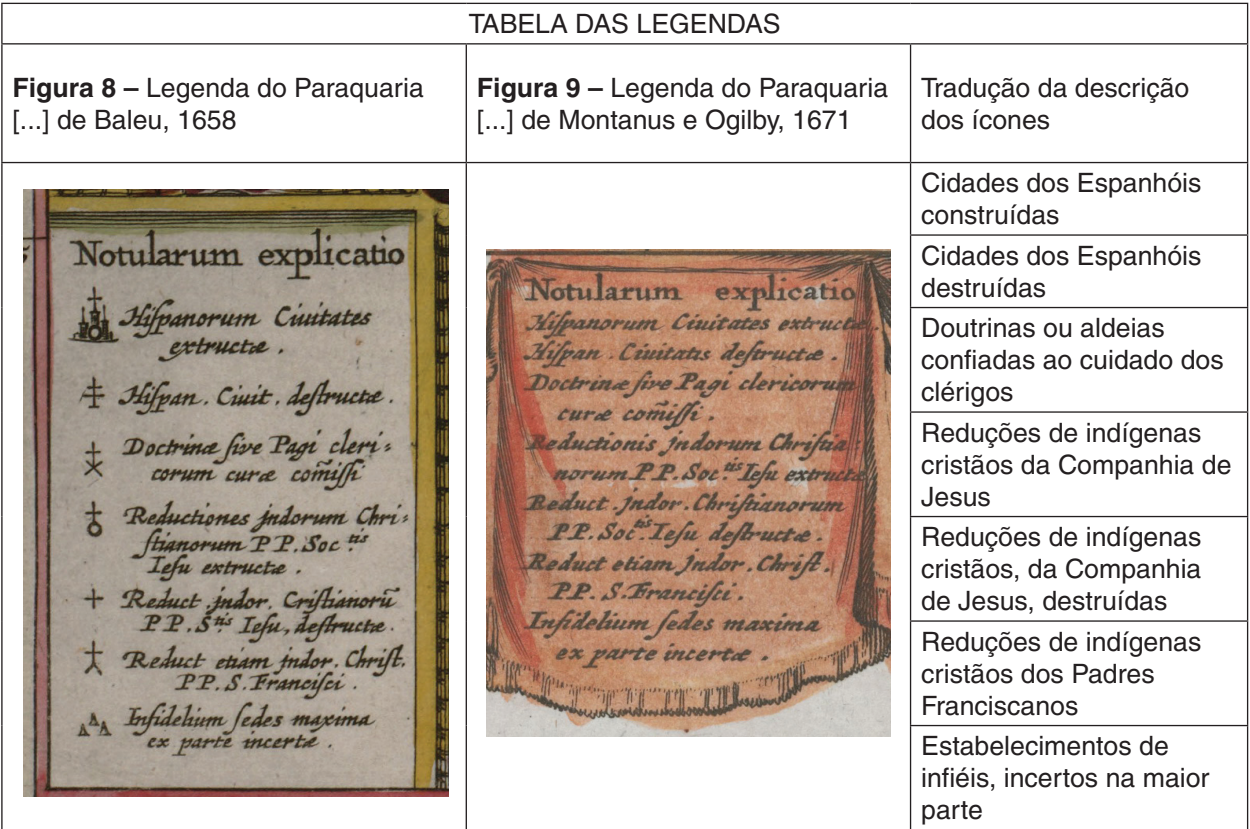 TABELA DAS LEGENDAS
Figura 8 – Legenda do Paraquaria
[...] de Baleu, 1658
Figura 9 – Legenda do Paraquaria
[...] de Montanus e Ogilby, 1671
Tradução da descrição
dos ícones
Notularum explicatio
Hiſpanorum Ciuitates
extructæ .
Hiſpan . Ciuit . deſtructæ .
Doctrinæ ſive Pagi cleri=
corum curæ com̃iſſi
Reductiones jndorum Chri=
ſtianorum P P. Soc.tis
Ieſu extructæ .
Reduct . jndor. Criſtianorũ
P P. S.tis Ieſu, deſtructæ .
Reduct etiam jndor. Chriſt.
P P. S. Franciſci .
Infidelium ſedes maxima
ex parte incertæ .
Notularum explicatio
Hiſpanorum Ciuitates extructæ .
Hiſpan . Ciuitatis deſtructæ .
Doctrinæ ſive Pagi clericorum
curæ com̃iſſi .
Reductionis jndorum Chriſtia=
norum P P. Soc.tis Ieſu extructæ
Reduct . jndor . Chriſtianorum
P P. Soc.tis Ieſu deſtructæ .
Reduct etiam jndor . Chriſt .
P P. S. Franciſci .
Infidelium ſedes maxima
ex parte incertæ .
Cidades dos Espanhóis
construídas
Cidades dos Espanhóis
destruídas
Doutrinas ou aldeias
confiadas ao cuidado dos
clérigos
Reduções de indígenas
cristãos da Companhia de
Jesus
Reduções de indígenas
cristãos, da Companhia
de Jesus, destruídas
Reduções de indígenas
cristãos dos Padres
Franciscanos
Estabelecimentos de
infiéis, incertos na maior
parte